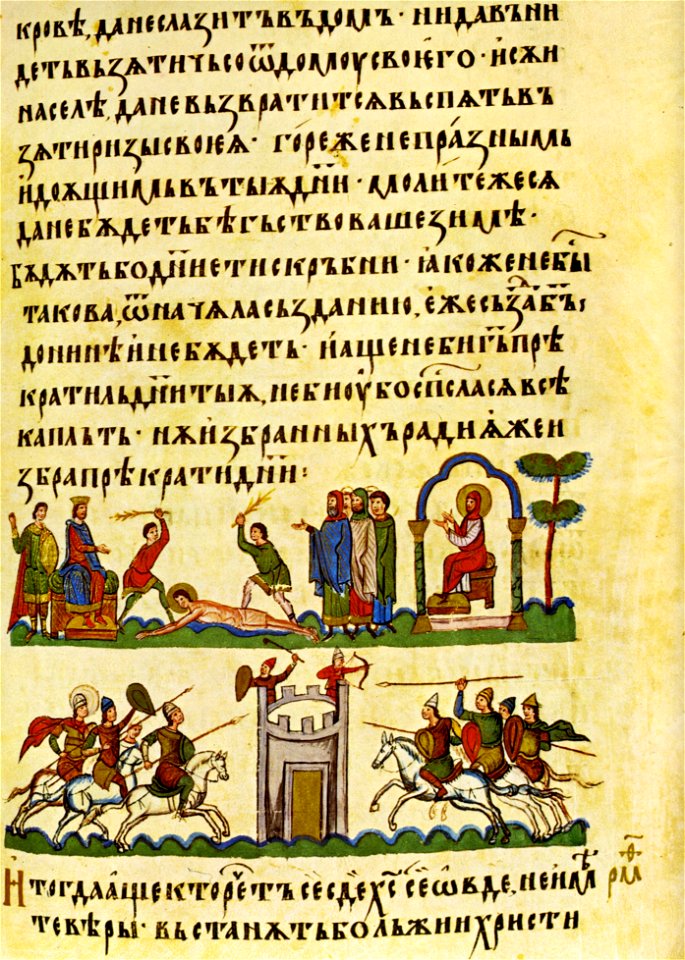 кровѣ, да неслазитъ въ домъ · ни да въни
детъ вьзѧти чьсо ѿ домоу своѥго · и сѫи
на селѣ, да не вьзвратитсѧ вьспѧть въ
зѧти ризы своѥѧ · горе же непра́знымь
и доѧщимь въ тыѫ дн҃и · молите же сѧ
да не бѫдеть бѣгьство ваше зимѣ ·
бѫдѫть бо дн҃ие ти скръбни · ꙗкоже не бы́
такова, ѿ начѧла сьзданию, е́же сьз̾да б҃ъ,
до нинѣ и не бѫдеть · и аще не би г҃ь прѣ
кратиль дн҃и тыѫ, не би оу́бо сп҃сласѧ всѣ
ка пльть · нѫ и́збранныхъ ради ѧже и
збра прѣкрати дн҃и :
И тогда аще кто ре́тъ се сде х҃с се ѡвде, не имѣ
те вѣры · вьстанѫть бо льжии христи
рм҃ѳ